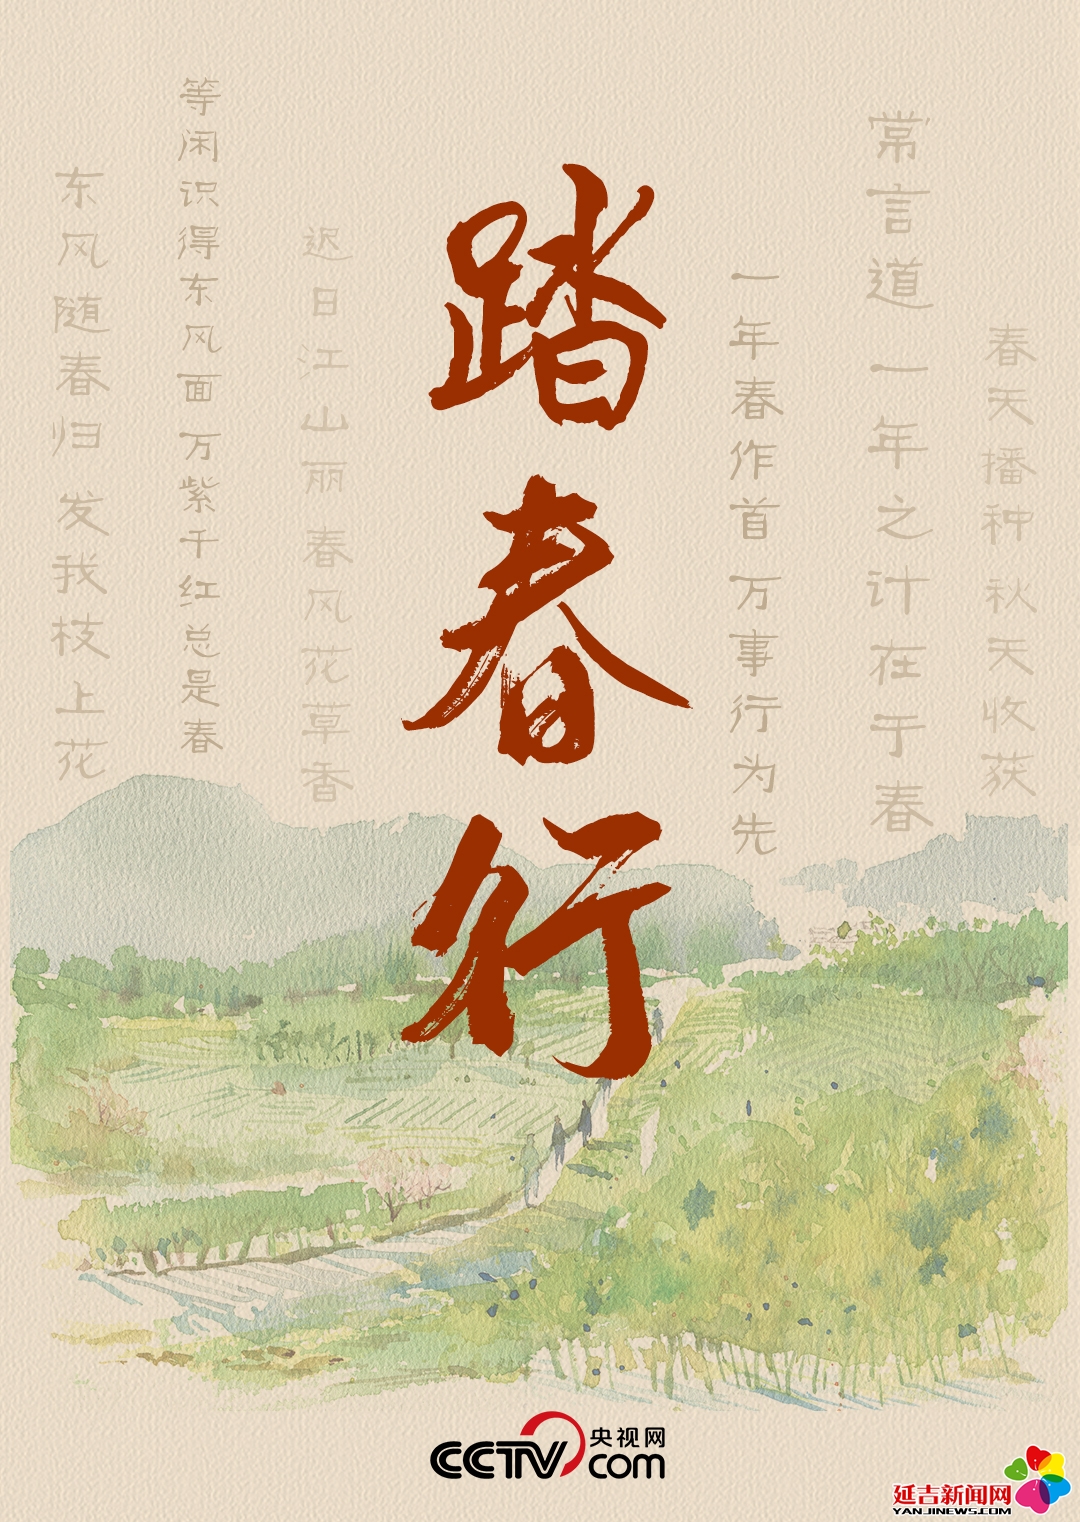 春天播种 秋天收获
常言道 一年之计在于春
一年春作首 万事行为先
踏春行
迟日江山丽 春风花草香
等闲识得东风面 万紫千红总是春
东风随春归 发我枝上花
CCTV.com 央视网
延吉新闻网
YANJINEWS.COM